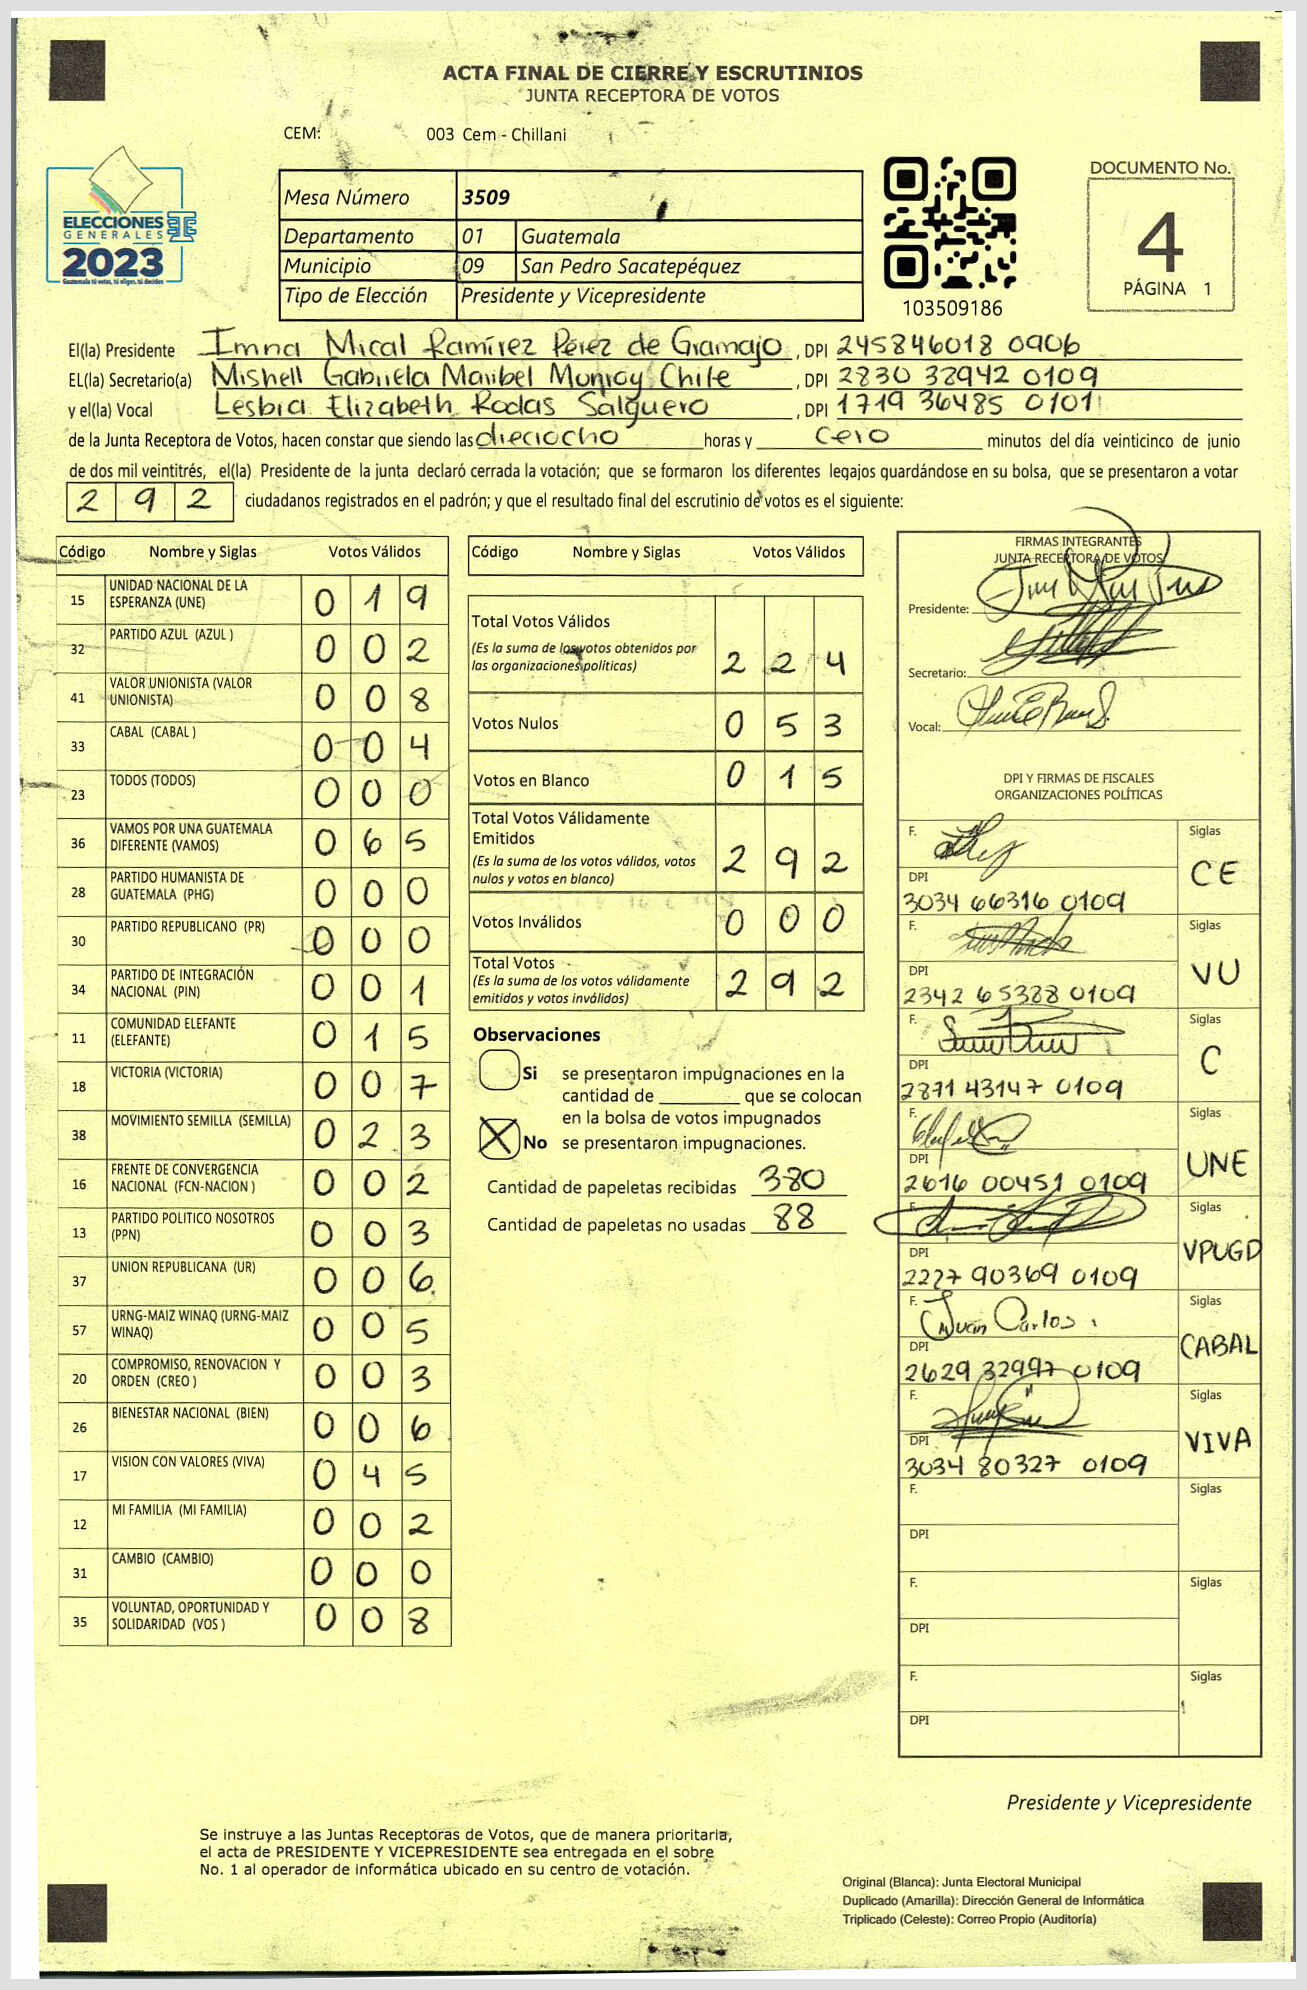 ACTA FINAL DE CIERRE Y ESCRUTINIOS
JUNTA RECEPTORA DE VOTOS
CEM: 003 Cem - Chillani
ELECCIONES
GENERALES
2023
Guatemala tú votas, tú eliges, tú decides
Mesa Número 3509
Departamento 01 Guatemala
Municipio 09 San Pedro Sacatepéquez
Tipo de Elección Presidente y Vicepresidente
103509186
DOCUMENTO No.
4
PÁGINA 1
El(la) Presidente Imna Mical Ramírez Pérez de Gramajo, DPI 245846018 0906
EL(la) Secretario(a) Mishell Gabriela Maribel Monroy Chile, DPI 2830 32942 0109
y el(la) Vocal Lesbia Elizabeth Rodas Salguero, DPI 1719 36485 0101
de la Junta Receptora de Votos, hacen constar que siendo las dieciocho horas y cero minutos del día veinticinco de junio
de dos mil veintitrés, el(la) Presidente de la junta declaró cerrada la votación; que se formaron los diferentes legajos guardándose en su bolsa, que se presentaron a votar
292 ciudadanos registrados en el padrón; y que el resultado final del escrutinio de votos es el siguiente:
Código Nombre y Siglas Votos Válidos
15 UNIDAD NACIONAL DE LA ESPERANZA (UNE) 0 1 9
32 PARTIDO AZUL (AZUL ) 0 0 2
41 VALOR UNIONISTA (VALOR UNIONISTA) 0 0 8
33 CABAL (CABAL ) 0 0 4
23 TODOS (TODOS) 0 0 0
36 VAMOS POR UNA GUATEMALA DIFERENTE (VAMOS) 0 6 5
28 PARTIDO HUMANISTA DE GUATEMALA (PHG) 0 0 0
30 PARTIDO REPUBLICANO (PR) 0 0 0
34 PARTIDO DE INTEGRACIÓN NACIONAL (PIN) 0 0 1
11 COMUNIDAD ELEFANTE (ELEFANTE) 0 1 5
18 VICTORIA (VICTORIA) 0 0 7
38 MOVIMIENTO SEMILLA (SEMILLA) 0 2 3
16 FRENTE DE CONVERGENCIA NACIONAL (FCN-NACION ) 0 0 2
13 PARTIDO POLITICO NOSOTROS (PPN) 0 0 3
37 UNION REPUBLICANA (UR) 0 0 6
57 URNG-MAIZ WINAQ (URNG-MAIZ WINAQ) 0 0 5
20 COMPROMISO, RENOVACION Y ORDEN (CREO ) 0 0 3
26 BIENESTAR NACIONAL (BIEN) 0 0 6
17 VISION CON VALORES (VIVA) 0 4 5
12 MI FAMILIA (MI FAMILIA) 0 0 2
31 CAMBIO (CAMBIO) 0 0 0
35 VOLUNTAD, OPORTUNIDAD Y SOLIDARIDAD (VOS ) 0 0 8
Código Nombre y Siglas Votos Válidos
Total Votos Válidos
(Es la suma de los votos obtenidos por las organizaciones políticas) 2 2 4
Votos Nulos 0 5 3
Votos en Blanco 0 1 5
Total Votos Válidamente Emitidos
(Es la suma de los votos válidos, votos nulos y votos en blanco) 2 9 2
Votos Inválidos 0 0 0
Total Votos
(Es la suma de los votos válidamente emitidos y votos inválidos) 2 9 2
Observaciones
Si se presentaron impugnaciones en la
cantidad de ________ que se colocan
en la bolsa de votos impugnados
No se presentaron impugnaciones.
Cantidad de papeletas recibidas 380
Cantidad de papeletas no usadas 88
FIRMAS INTEGRANTES
JUNTA RECEPTORA DE VOTOS
Presidente:
Secretario:
Vocal:
DPI Y FIRMAS DE FISCALES
ORGANIZACIONES POLÍTICAS
F. Siglas
DPI CE
3034 66316 0109
F. Siglas
DPI VU
2342 65388 0109
F. Siglas
DPI C
2871 43147 0109
F. Siglas
DPI UNE
2616 00451 0109
F. Siglas
DPI VPUGD
2227 90369 0109
F. Juan Carlos Siglas
DPI CABAL
2629 32997 0109
F. Siglas
DPI VIVA
3034 80327 0109
F. Siglas
DPI
F. Siglas
DPI
F. Siglas
DPI
Presidente y Vicepresidente
Se instruye a las Juntas Receptoras de Votos, que de manera prioritaria,
el acta de PRESIDENTE Y VICEPRESIDENTE sea entregada en el sobre
No. 1 al operador de informática ubicado en su centro de votación.
Original (Blanca): Junta Electoral Municipal
Duplicado (Amarilla): Dirección General de Informática
Triplicado (Celeste): Correo Propio (Auditoría)